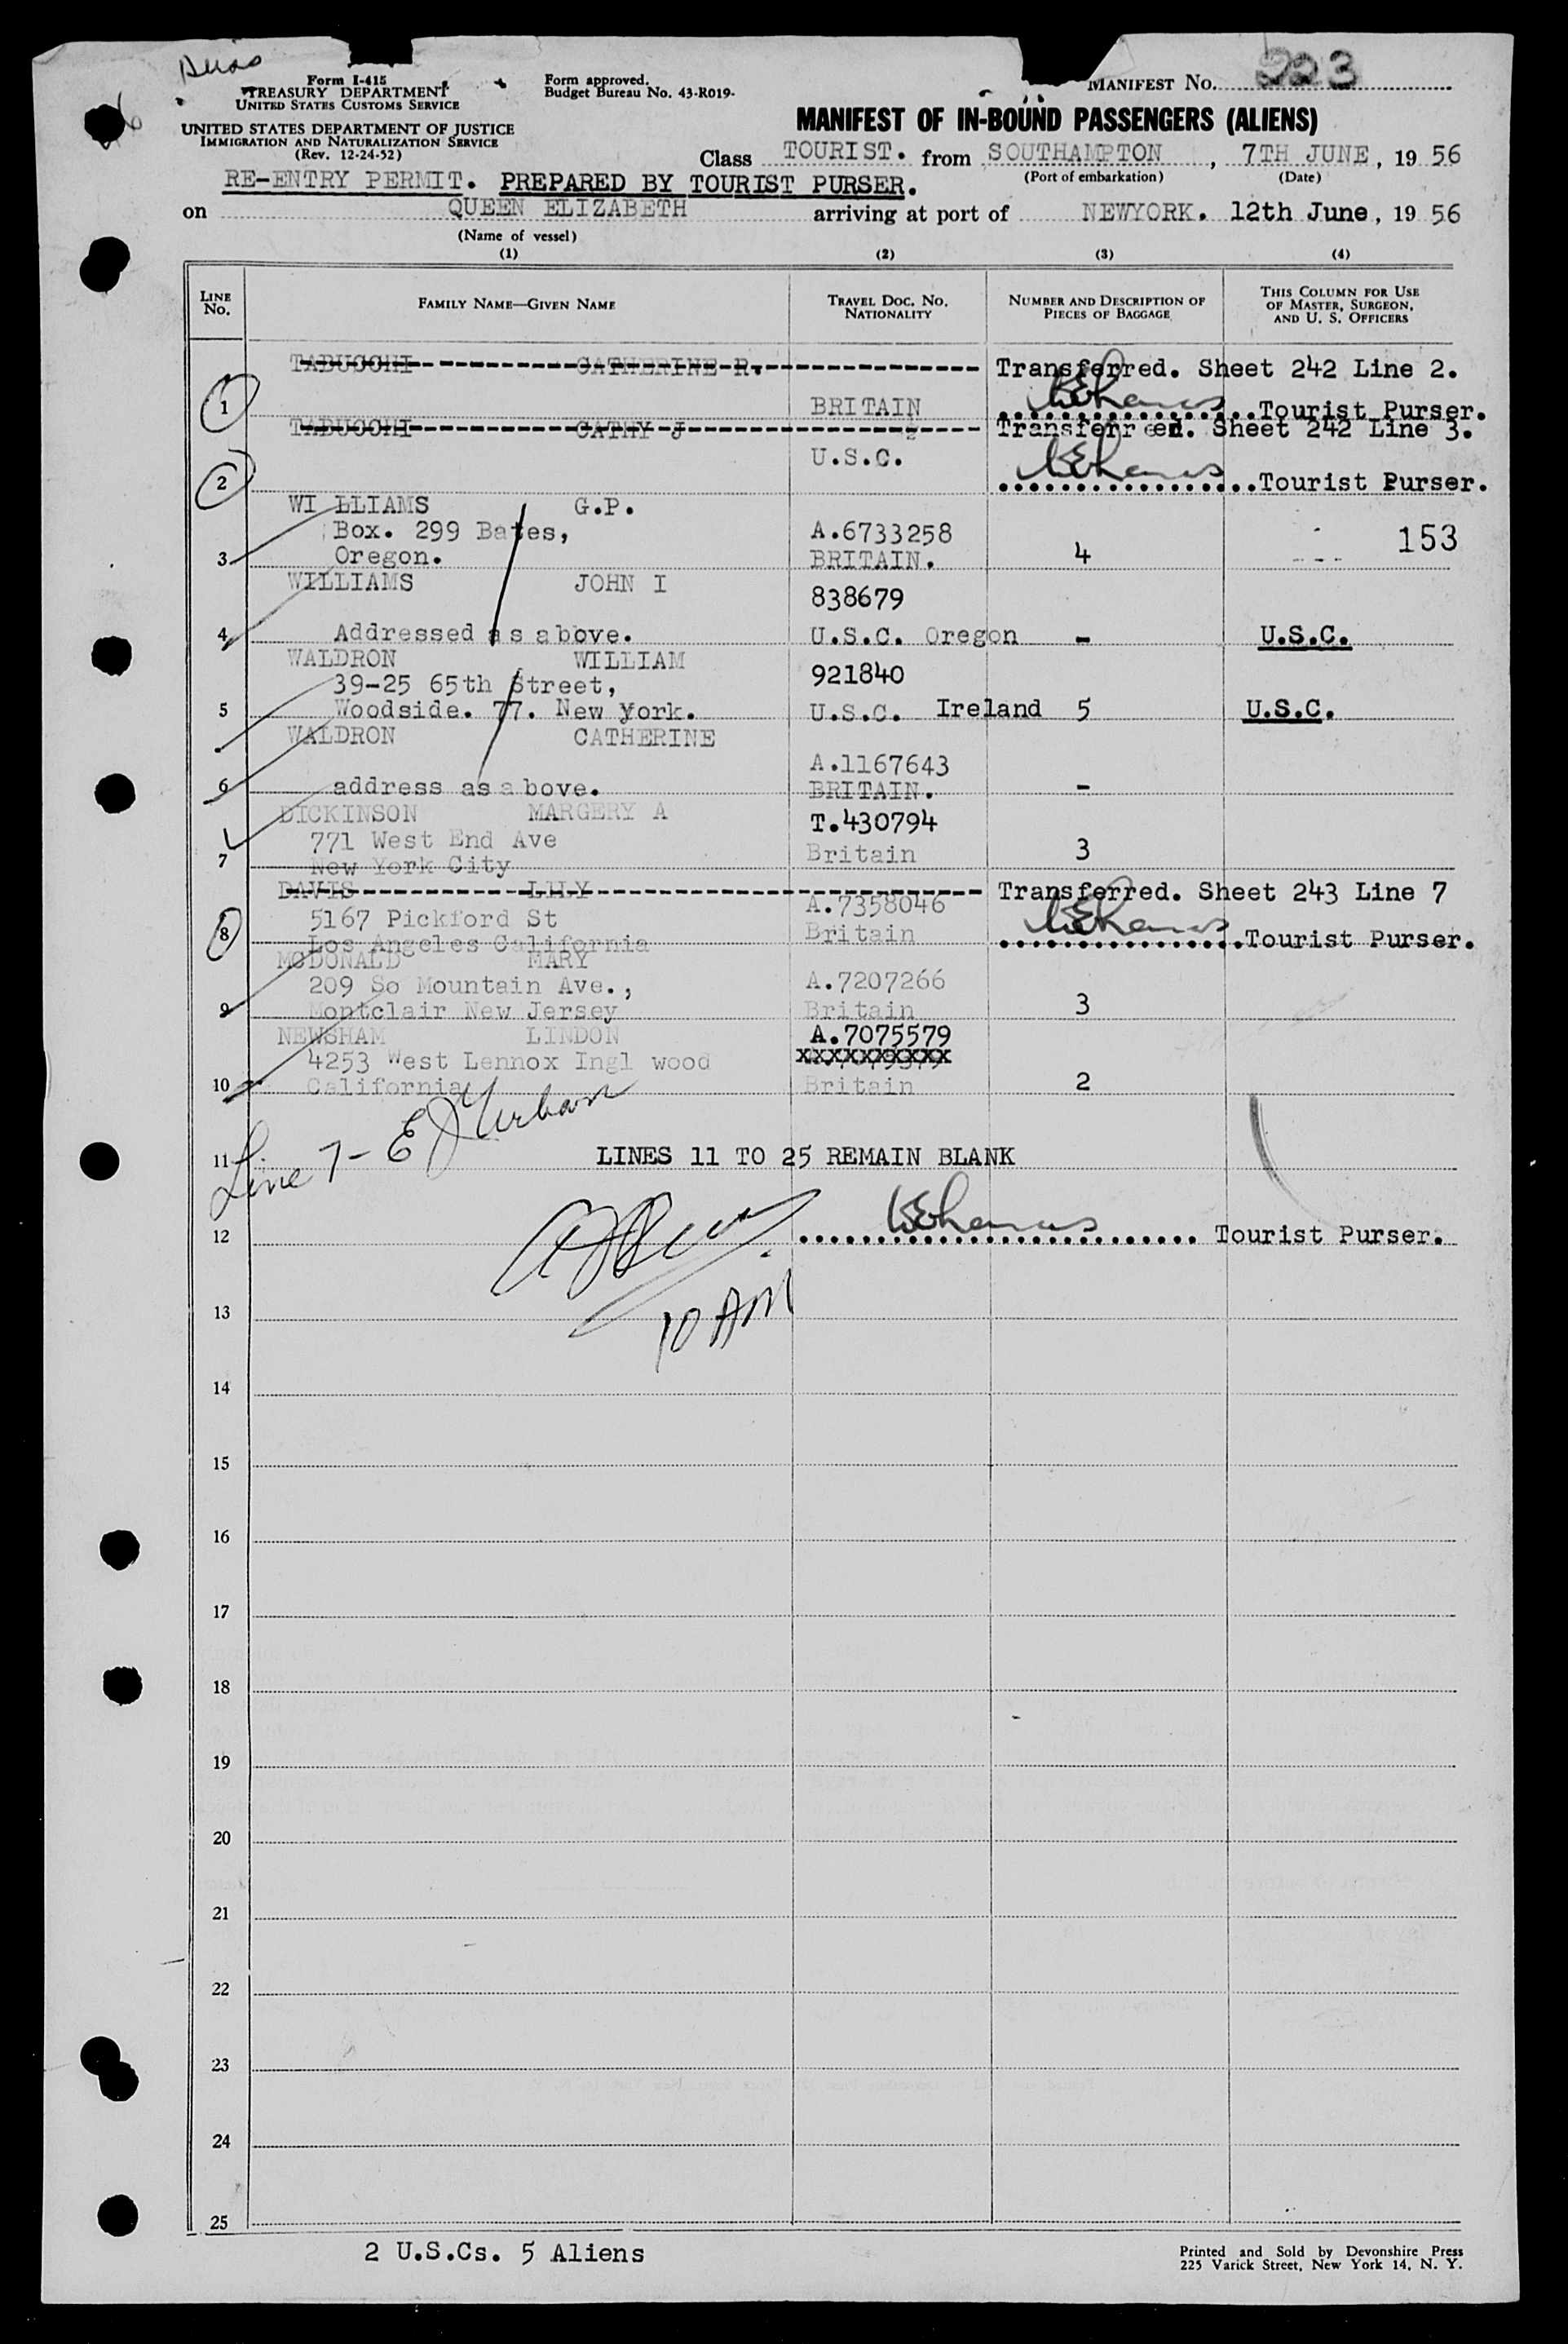 Form I-415
TREASURY DEPARTMENT
UNITED STATES CUSTOMS SERVICE
UNITED STATES DEPARTMENT OF JUSTICE
IMMIGRATION AND NATURALIZATION SERVICE
(Rev. 12-24-52)
Form approved.
Budget Bureau No. 43-R019-
MANIFEST No. 223
MANIFEST OF IN-BOUND PASSENGERS (ALIENS)
Class TOURIST. from SOUTHAMPTON, 7TH JUNE, 19 56
(Port of embarkation) (Date)
RE-ENTRY PERMIT. PREPARED BY TOURIST PURSER.
on QUEEN ELIZABETH arriving at port of NEWYORK. 12th June, 19 56
(Name of vessel)
(1) (2) (3) (4)
LINE No. FAMILY NAME—GIVEN NAME TRAVEL DOC. NO. NATIONALITY NUMBER AND DESCRIPTION OF PIECES OF BAGGAGE THIS COLUMN FOR USE OF MASTER, SURGEON, AND U. S. OFFICERS
TABUCCHI CATHERINE R. Transferred. Sheet 242 Line 2.
1 BRITAIN Tourist Purser.
TABUCCHI CATHY J Transferred. Sheet 242 Line 3.
U.S.C.
2 Tourist Purser.
WI LLIAMS G.P.
Box. 299 Bates, A.6733258 153
3 Oregon. BRITAIN. 4
WILLIAMS JOHN I
838679
4 Addressed as above. U.S.C. Oregon - U.S.C.
WALDRON WILLIAM
39-25 65th Street, 921840
5 Woodside. 77. New York. U.S.C. Ireland 5 U.S.C.
WALDRON CATHERINE
A.1167643
6 address as above. BRITAIN. -
DICKINSON MARGERY A T.430794
771 West End Ave
7 New York City Britain 3
DAVIS LILY Transferred. Sheet 243 Line 7
5167 Pickford St A.7358046
8 Los Angeles California Britain Tourist Purser.
MCDONALD MARY
209 So Mountain Ave., A.7207266
9 Montclair New Jersey Britain 3
NEWSHAM LINDON A.7075579
4253 West Lennox Ingl wood XXXXXXXXXX
10 California Britain 2
Line 7-
11 LINES 11 TO 25 REMAIN BLANK
12 Tourist Purser.
10 AM
13
14
15
16
17
18
19
20
21
22
23
24
25
2 U.S.Cs. 5 Aliens
Printed and Sold by Devonshire Press
225 Varick Street, New York 14, N. Y.